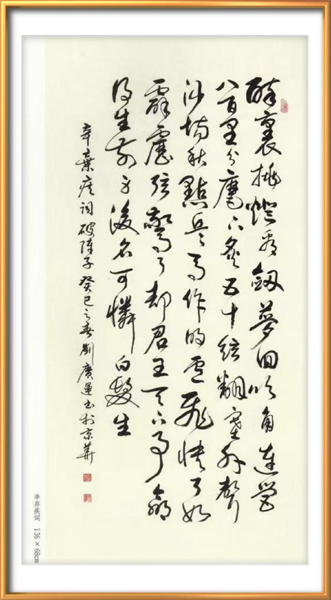 醉裏挑燈看劍夢回吹角連營
八百里分麾下炙五十弦翻塞外聲
沙場秋點兵馬作的盧飛快弓如
霹靂弦驚了却君王天下事贏
得生前身後名可憐白髮生
辛棄疾词破陣子癸巳之春劉廣迎书於京華
辛弃疾词 136×68cm